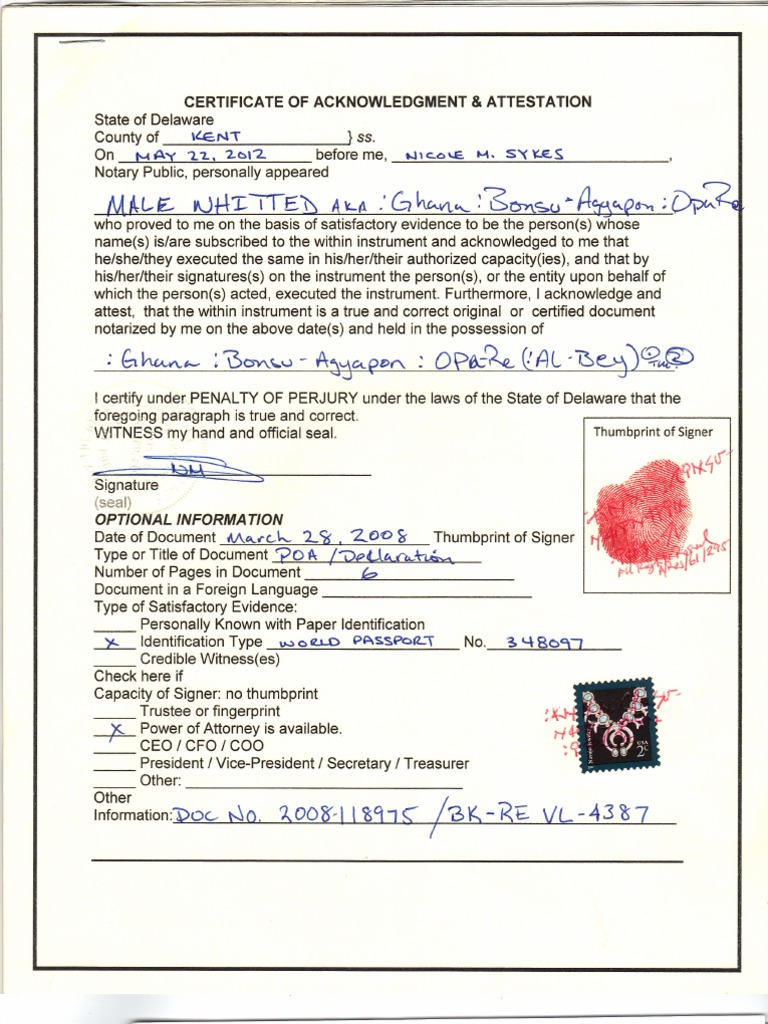 CERTIFICATE OF ACKNOWLEDGMENT & ATTESTATION
State of Delaware
County of KENT } ss.
On MAY 22, 2012 before me, NICOLE M. SYKES,
Notary Public, personally appeared
MALE WHITTED AKA :Ghana:Bonsu-Agyapon:OpaRe
who proved to me on the basis of satisfactory evidence to be the person(s) whose
name(s) is/are subscribed to the within instrument and acknowledged to me that
he/she/they executed the same in his/her/their authorized capacity(ies), and that by
his/her/their signatures(s) on the instrument the person(s), or the entity upon behalf of
which the person(s) acted, executed the instrument. Furthermore, I acknowledge and
attest, that the within instrument is a true and correct original or certified document
notarized by me on the above date(s) and held in the possession of
:Ghana:Bonsu-Agyapon:OPA-Re(:AL-Bey)
I certify under PENALTY OF PERJURY under the laws of the State of Delaware that the
foregoing paragraph is true and correct.
WITNESS my hand and official seal.
Thumbprint of Signer
Signature
(seal)
OPTIONAL INFORMATION
Date of Document March 28, 2008 Thumbprint of Signer
Type or Title of Document POA / Declaration
Number of Pages in Document 6
Document in a Foreign Language
Type of Satisfactory Evidence:
Personally Known with Paper Identification
x Identification Type WORLD PASSPORT No. 348097
Credible Witness(es)
Check here if
Capacity of Signer: no thumbprint
Trustee or fingerprint
x Power of Attorney is available.
CEO / CFO / COO
President / Vice-President / Secretary / Treasurer
Other:
USA
2c
Other
Information: DOC NO. 2008-118975 / BK-RE VL-4387